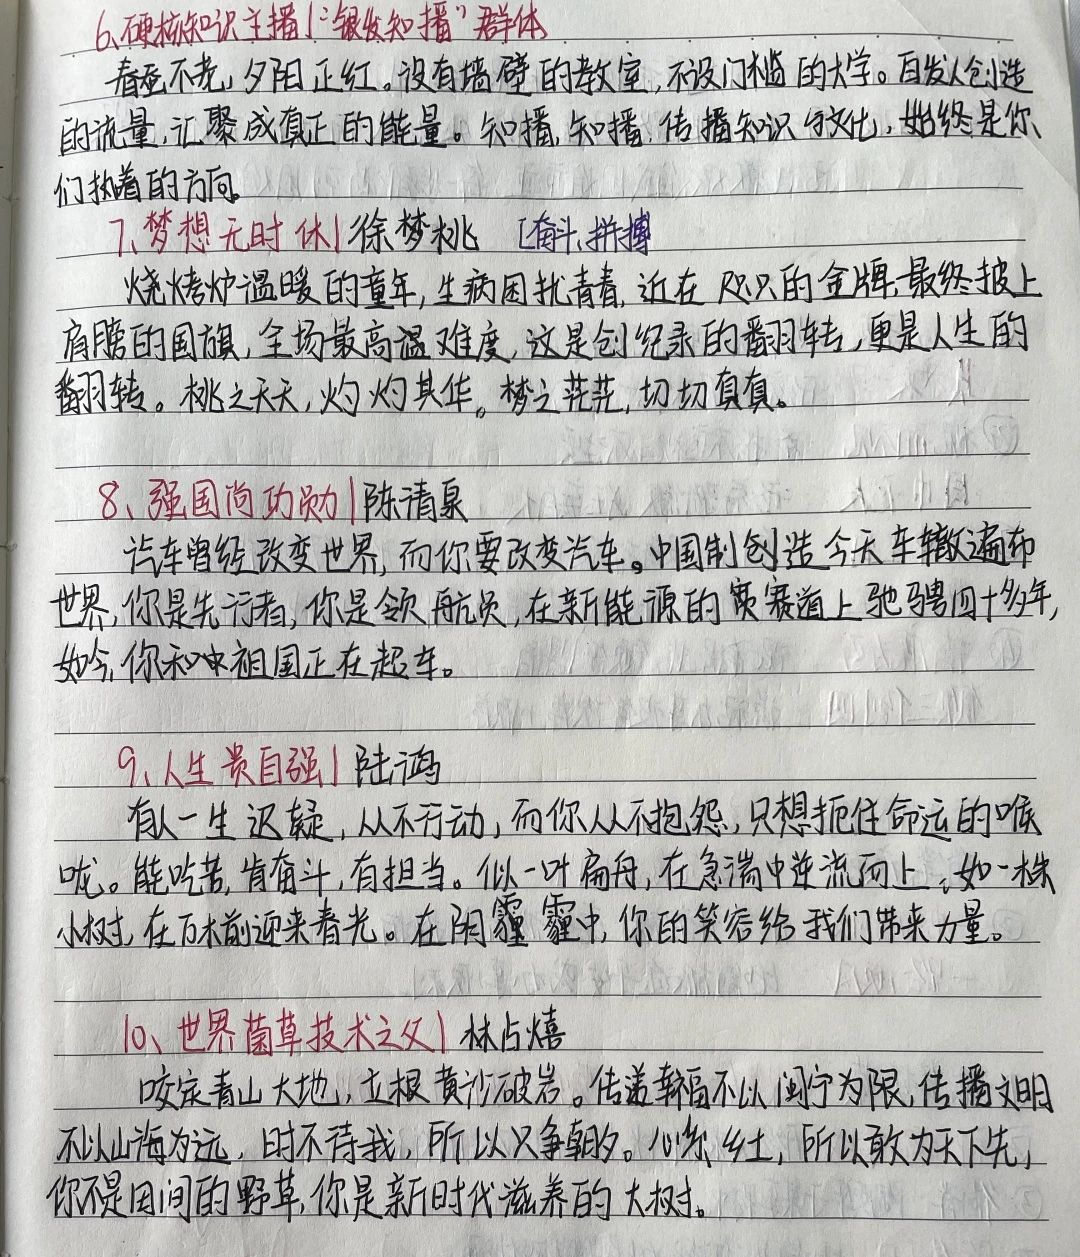 6、硬核知识主播|“银发知播”群体
春蚕不老,夕阳正红。没有墙壁的教室,不设门槛的大学。白发人创造
的流量,汇聚成真正的能量。知播,知播,传播知识与文化,始终是你
们执着的方向。
7、梦想无时休|徐梦桃 [奋斗、拼搏
烧烤炉温暖的童年,生病困扰青春,近在咫尺的金牌,最终披上
肩膀的国旗,全场最高温难度,这是创纪录的翻转,更是人生的
翻转。桃之夭夭,灼灼其华。梦之茫茫,切切真真。
8、强国尚功勋|陈清泉
汽车曾经改变世界,而你要改变汽车。中国制创造今天车辙遍布
世界,你是先行者,你是领航员,在新能源的赛道上驰骋四十多年,
如今,你和祖国正在超车。
9、人生贵自强|陆鸿
有人一生迟疑,从不行动,而你从不抱怨,只想扼住命运的喉
咙。能吃苦,肯奋斗,有担当。似一叶扁舟,在急湍中逆流而上,如一株
小树,在万木前迎来春光。在阴霾霾中,你的笑容给我们带来力量。
10、世界菌草技术之父|林占熺
咬定青山大地,立根黄沙破岩。传递幸福不以闽宁为限,传播文明
不以山海为远,时不待我,所以只争朝夕。心系乡土,所以敢为天下先,
你不是田间的野草,你是新时代滋养的大树。